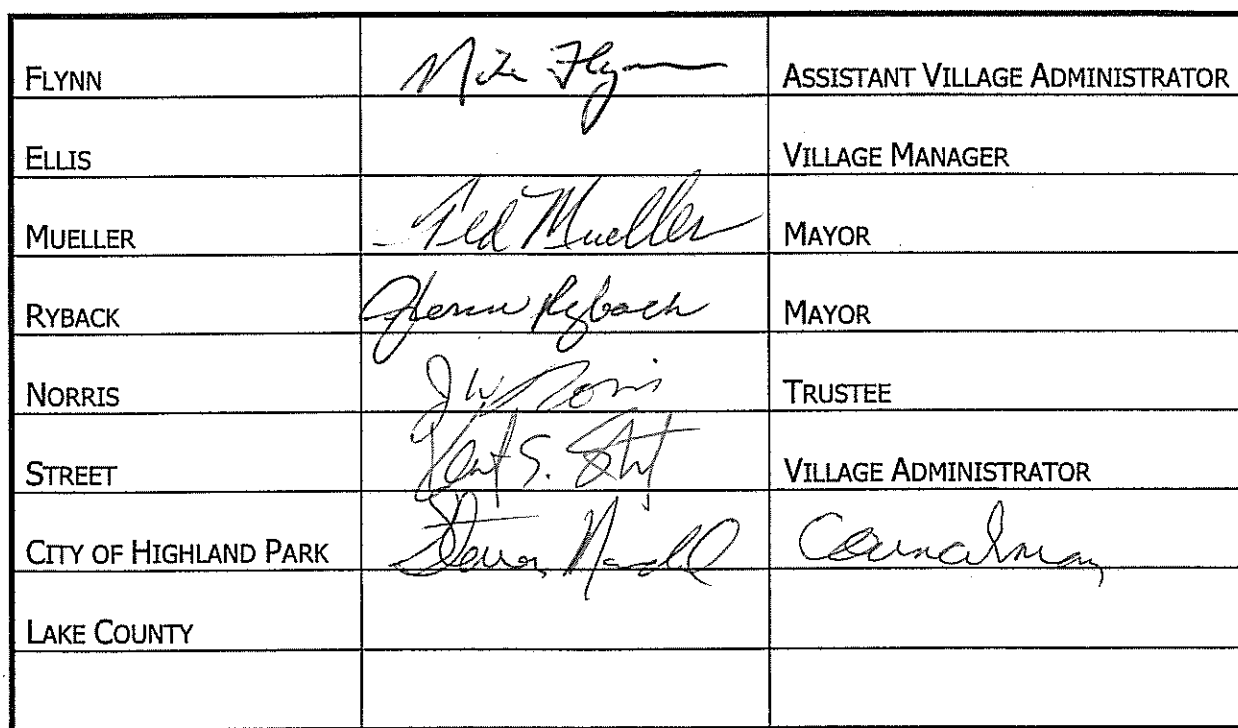 FLYNN Mike Flynn ASSISTANT VILLAGE ADMINISTRATOR
ELLIS VILLAGE MANAGER
MUELLER Ted Mueller MAYOR
RYBACK Glenn Ryback MAYOR
NORRIS JW Norris TRUSTEE
STREET Kent S. Street VILLAGE ADMINISTRATOR
CITY OF HIGHLAND PARK Steven Mandel Councilman
LAKE COUNTY